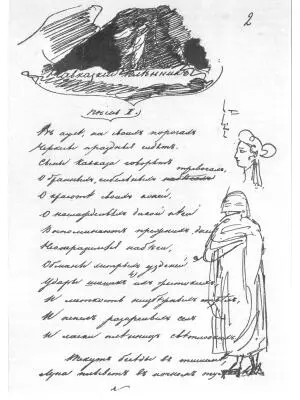 2
Кавказскій плѣнникъ
Въ аулѣ, на своихъ порогахъ
Черкесы праздные сидятъ.
Сыны Кавказа говорятъ
тревогахъ,
О бранныхъ, гибельныхъ
О красотѣ своихъ коней,
О наслажденьяхъ дикой нѣги
Воспоминаютъ прежнихъ дней
Неотразимые набѣги,
Обманы хитрыхъ узденей,
Удары шашекъ ихъ жестокихъ,
И мѣткость неизбѣжныхъ стрѣлъ,
И пепелъ разоренныхъ селъ
И ласки плѣнницъ
Текутъ бесѣды въ тишинѣ
Луна плыветъ въ ночномъ